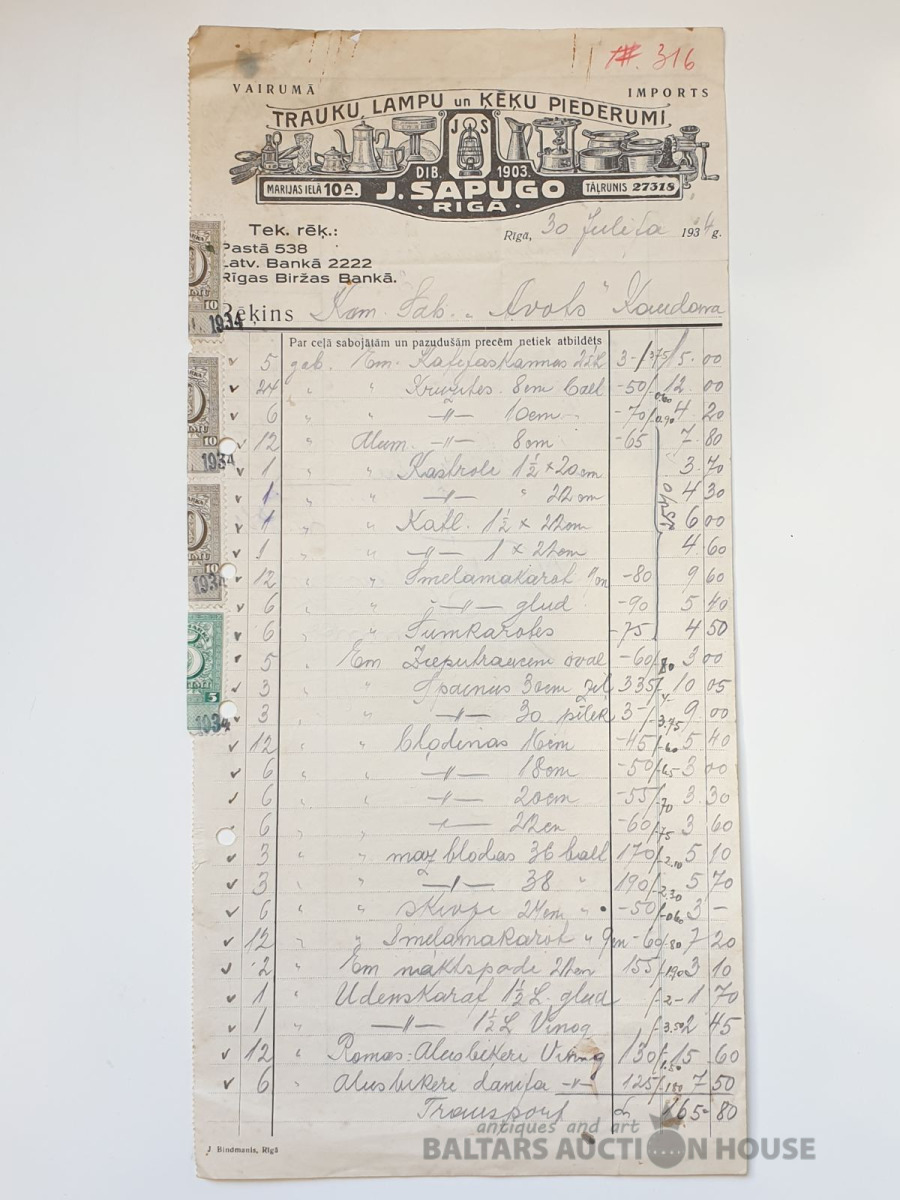 №. 316
VAIRUMĀ IMPORTS
TRAUKU, LAMPU un ĶĒĶU PIEDERUMI,
J S
DIB. 1903.
MARIJAS IELĀ 10A. J. SAPUGO TĀĻRUNIS 27318
· RĪGĀ ·
Tek. rēķ.:
Rīgā, 30 Julijā 1934 g.
Pastā 538
Latv. Bankā 2222
Rīgas Biržas Bankā.
10
1934
Rēķins Kom. Sab. „Avots"
Par ceļā sabojātām un pazudušām precēm netiek atbildēts
5 gab. Em. Kafijaskannas 3- 3.75 15.00
24 " " 8cm ball -50 -0.60 12.00
6 " " -"- 10cm -70 -0.90 4 20
12 " Alum. -"- 8cm -65 7 80
10
1934
1 " Kastroli 1½ × 20cm 3.70
1 " " -"- " 22cm 4 30
1 " " Katl. 1½ × 22cm 6 00
1 " " -"- 1 × 22cm 4 60
10
1934
12 " " Smeļamakarot -80 9 60
6 " " -"- glud -90 5 40
6 " " Zupkarotes -75 4 50
5 " Em Zieputraucini oval -60 -80 3 00
5
1934
3 " " Spainus 30cm 335 10 05
3 " " -"- 30 pelēk 3- -3.75 9 00
12 " " bļodiņas 16cm -45 -60 5 40
6 " " -"- 18cm -50 -65 3 00
6 " " -"- 20cm -55 -70 3.30
6 " " -"- 22cm -60 -75 3 60
3 " " maz blodas 36 ball 170 -2.10 5 10
3 " " -"- 38 " 190 -2.30 5 70
6 " " šķivji 24cm " -50 -0.60 3 -
12 " " Smeļamakarot " 9cm -60 -80 7 20
2 " Em naktspodi 22cm 155 -1.90 3 10
1 " Udenskaraf 1½ L. glud -2- 1 70
1 " -"- 1½ L Vinog -3.50 2 45
12 " Romas-Alusbiķeri Vinog 130 -1.50 15 60
6 " Alusbiķeri -"- 125 -1.80 7 50
Transport 165-80
J. Bindmanis, Rīgā
antiques and art
BALTARS AUCTION HOUSE